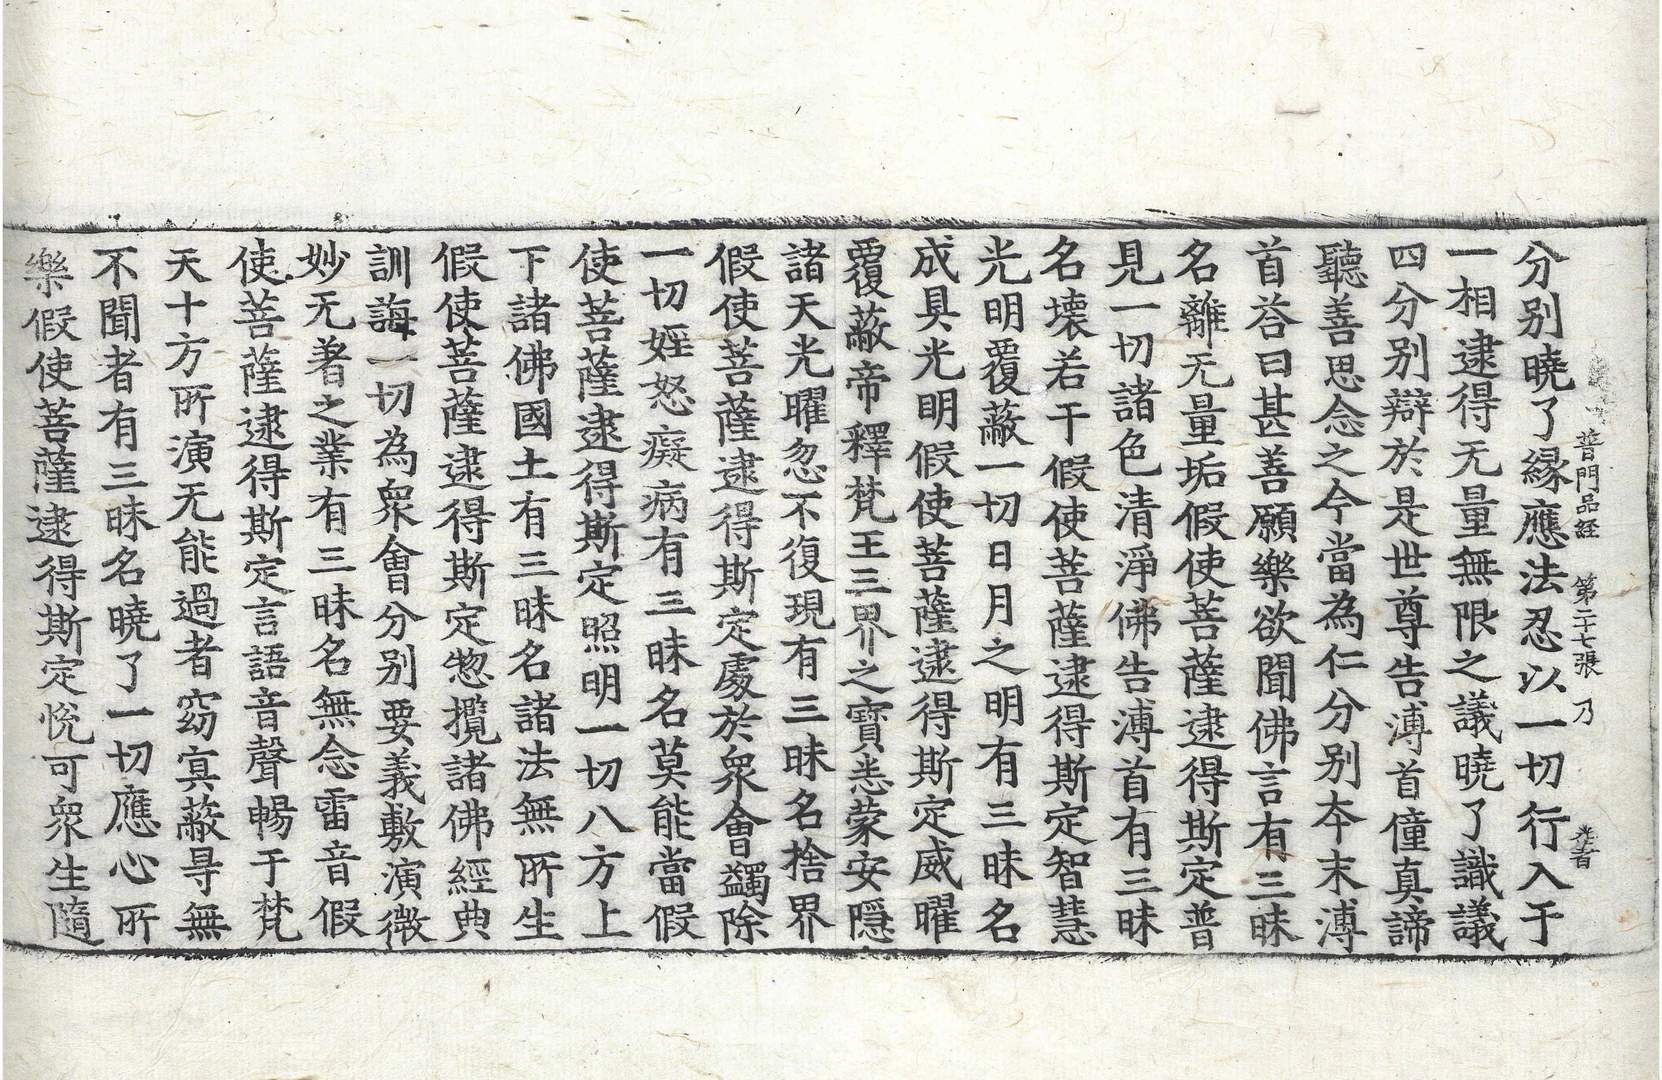 普門品經 第二十七張 乃
分別曉了緣應法忍以一切行入于
一相逮得无量無限之議曉了識議
四分別辯於是世尊告溥首僮真諦
聽善思念之今當為仁分別本末溥
首荅曰甚善願樂欲聞佛言有三昧
名離无量垢假使菩薩逮得斯定普
見一切諸色清淨佛告溥首有三昧
名壞若干假使菩薩逮得斯定智慧
光明覆蔽一切日月之明有三昧名
成具光明假使菩薩逮得斯定威曜
覆蔽帝釋梵王三界之寶悉蒙安隱
諸天光曜忽不復現有三昧名捨界
假使菩薩逮得斯定處於衆會蠲除
一切婬怒癡病有三昧名莫能當假
使菩薩逮得斯定照明一切八方上
下諸佛國土有三昧名諸法無所生
假使菩薩逮得斯定惣攬諸佛經典
訓誨一切為衆會分別要義敷演微
妙无著之業有三昧名無念雷音假
使菩薩逮得斯定言語音聲暢于梵
天十方所演无能過者窈冥蔽㝵無
不聞者有三昧名曉了一切應心所
樂假使菩薩逮得斯定悅可衆生隨